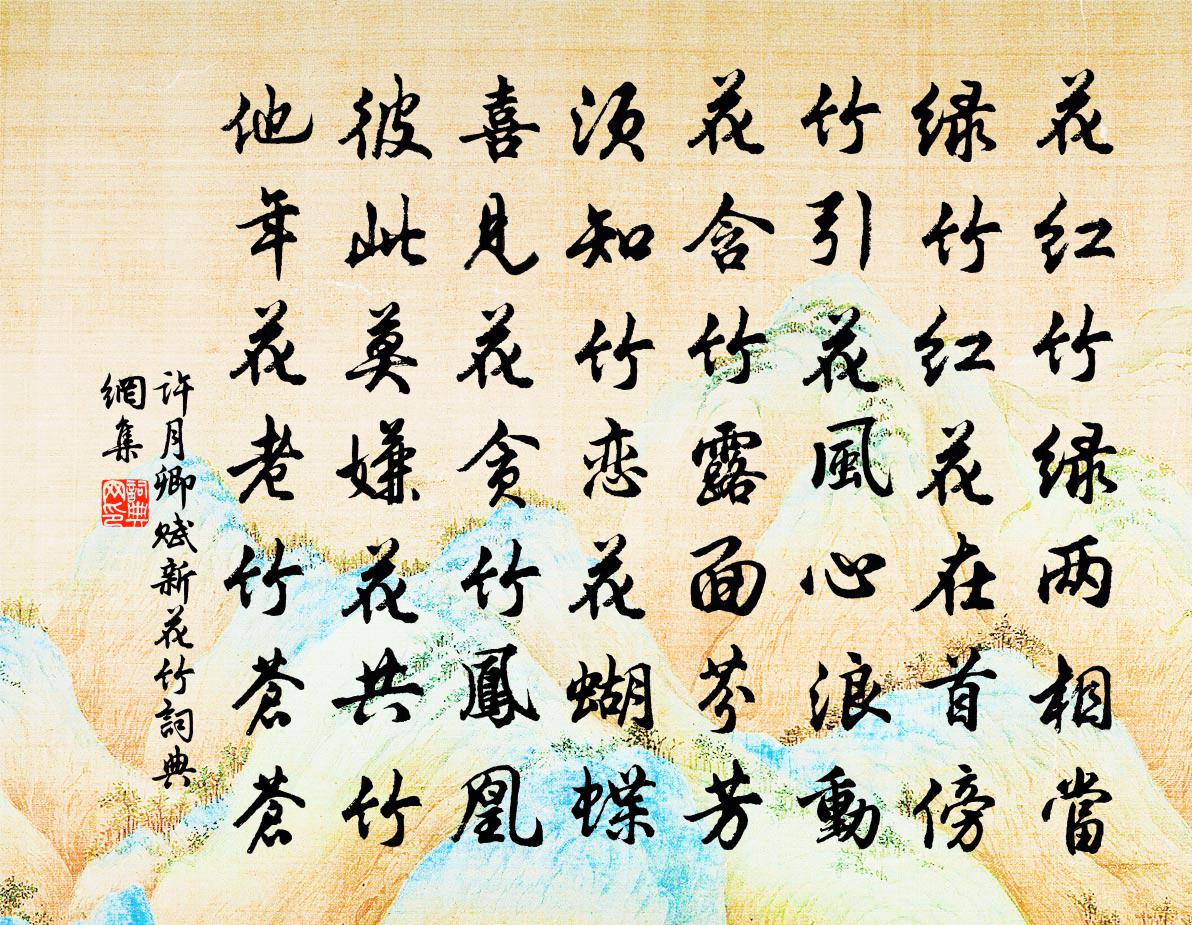 花红竹绿两相當
绿竹红花在首傍
竹引花風心浪動
花含竹露面芬芳
須知竹恋花蝴蝶
喜見花贪竹鳳凰
彼此莫嫌花共竹
他年花老竹蒼蒼
许月卿赋新花竹詞典
網集
詞典
网印